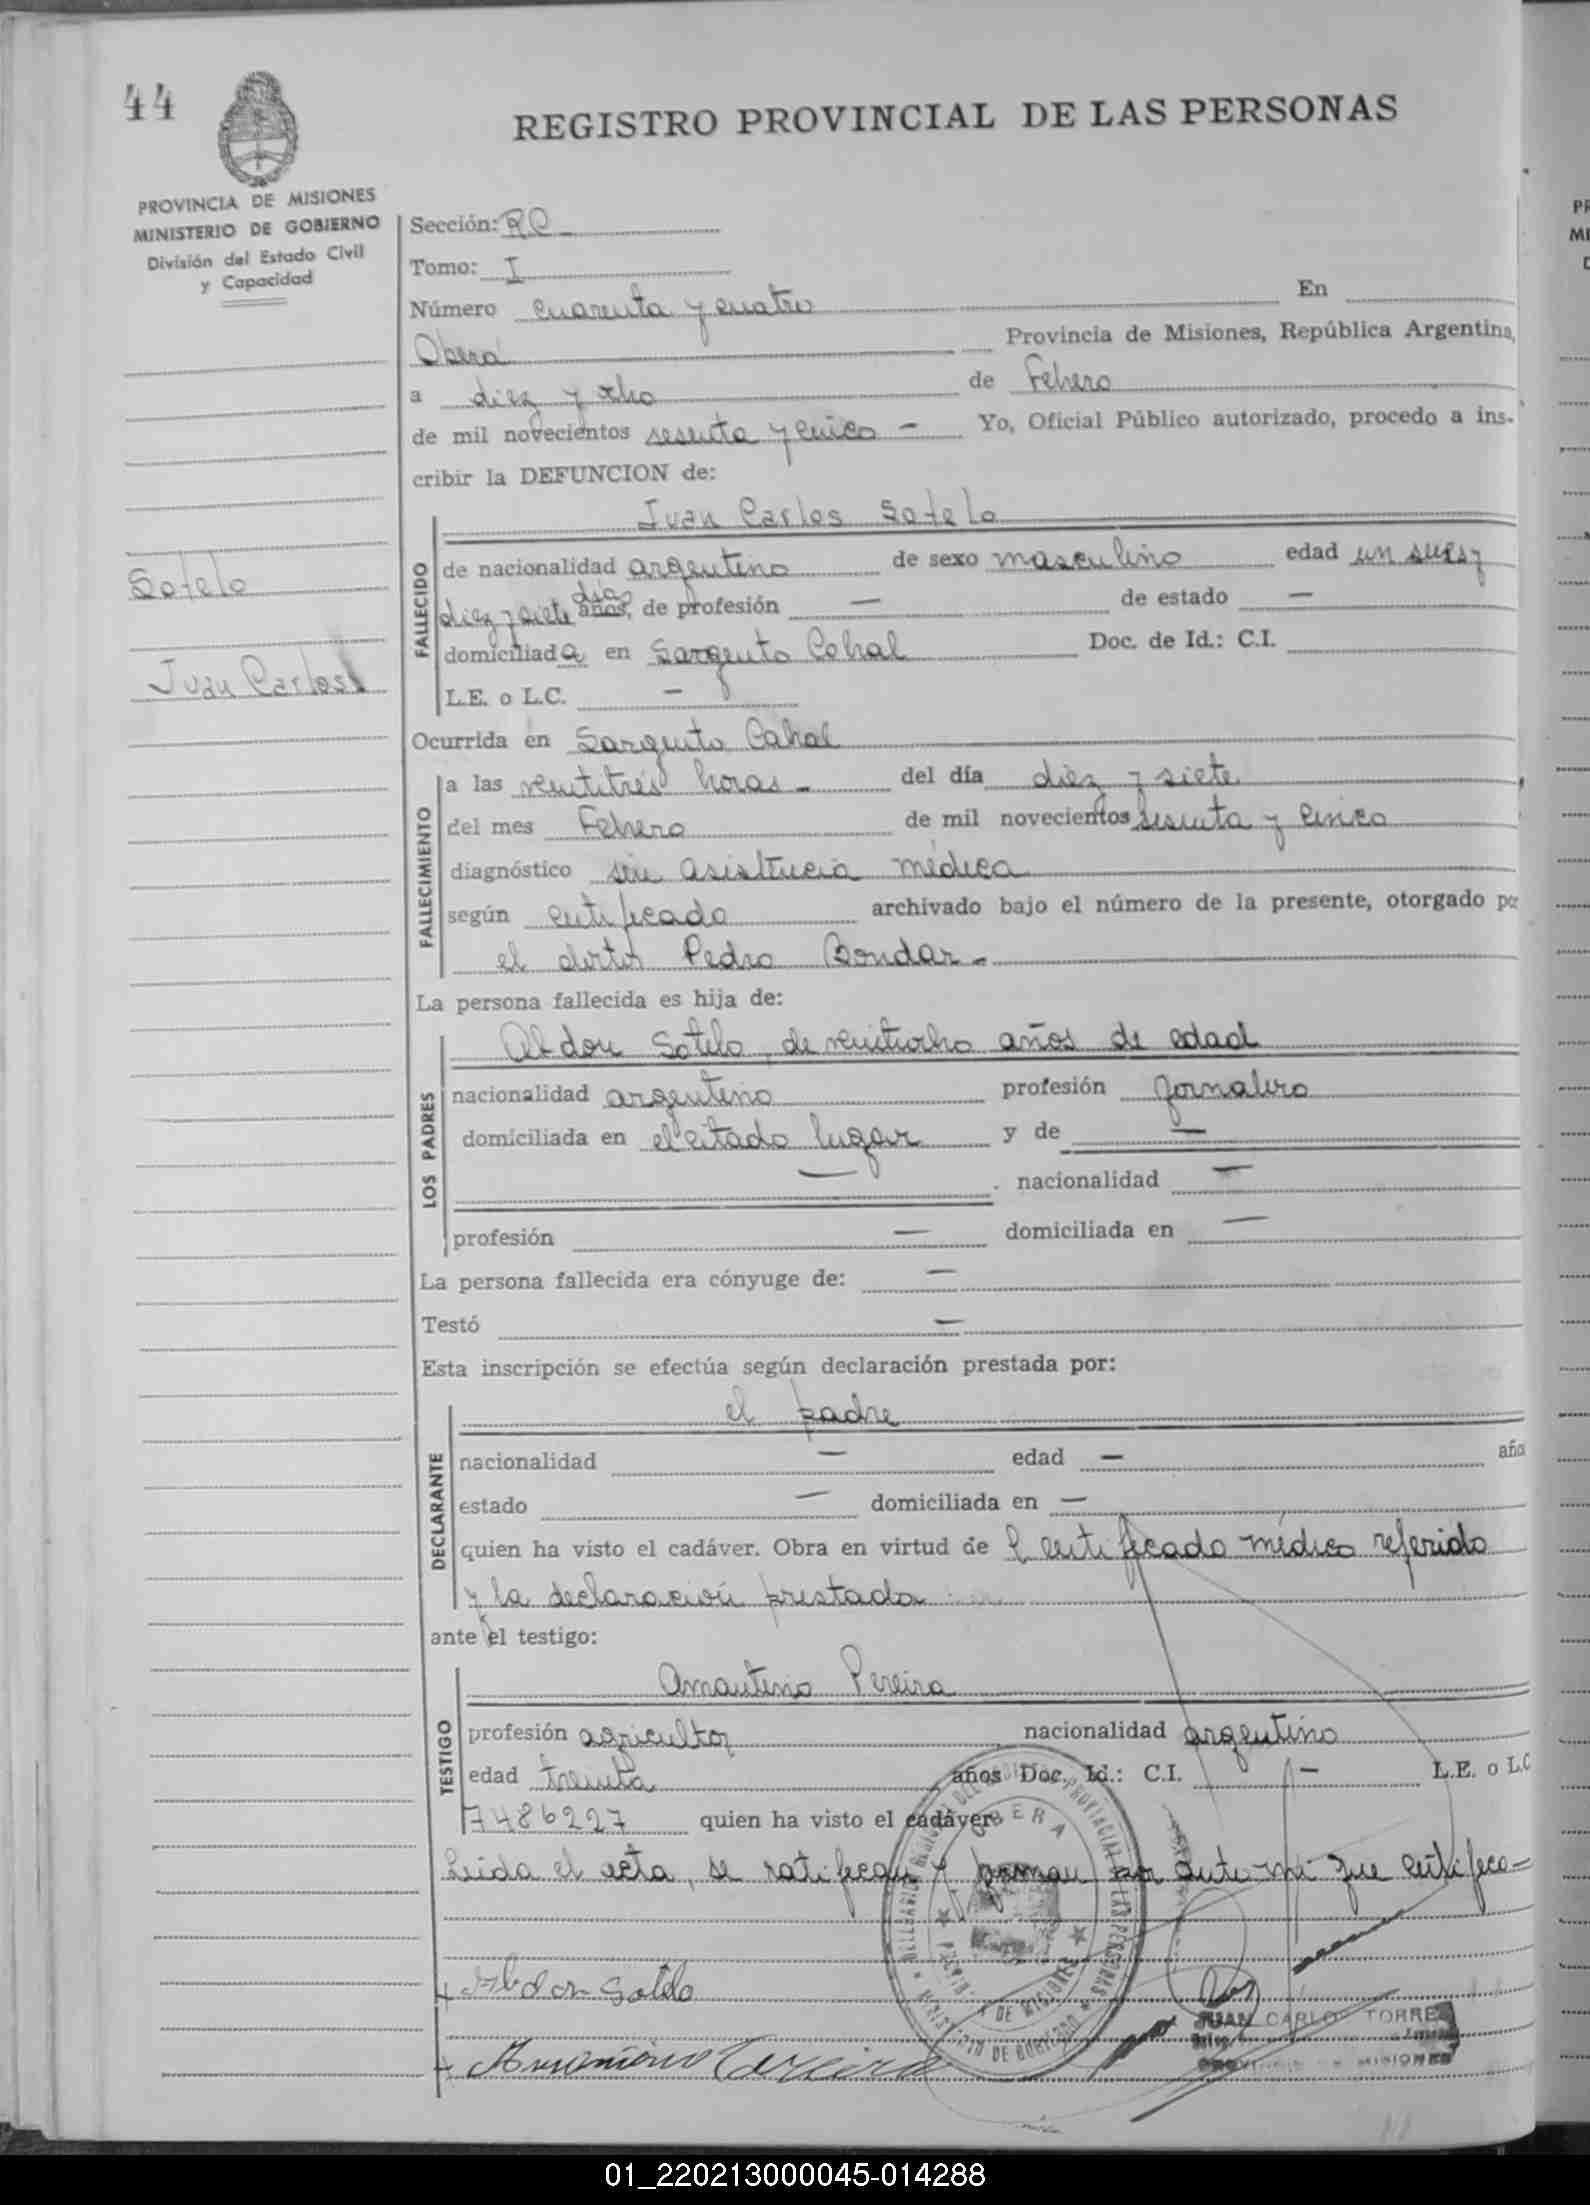 44
REGISTRO PROVINCIAL DE LAS PERSONAS
PROVINCIA DE MISIONES
MINISTERIO DE GOBIERNO
División del Estado Civil
y Capacidad
Sección: RC
Tomo: I
Número cuarenta y cuatro En
Oberá Provincia de Misiones, República Argentina,
a diez y ocho de Febrero
de mil novecientos sesenta y cinco - Yo, Oficial Público autorizado, procedo a ins-
cribir la DEFUNCION de:
Juan Carlos Sotelo
Sotelo
Juan Carlos
FALLECIDO
de nacionalidad argentino de sexo masculino edad un mes y
diez y siete días años, de profesión — de estado —
domiciliada en Sargento Cabral Doc. de Id.: C.I.
L.E. o L.C. —
Ocurrida en Sargento Cabral
FALLECIMIENTO
a las veintitrés horas - del día diez y siete
del mes Febrero de mil novecientos sesenta y cinco
diagnóstico sin asistencia médica
según certificado archivado bajo el número de la presente, otorgado po
el doctor Pedro Bondar -
La persona fallecida es hija de:
LOS PADRES
Abdon Sotelo, de veintiocho años de edad
nacionalidad argentino profesión jornalero
domiciliada en el citado lugar y de —
— . nacionalidad —
profesión — domiciliada en —
La persona fallecida era cónyuge de: —
Testó —
Esta inscripción se efectúa según declaración prestada por:
DECLARANTE
el padre
nacionalidad — edad — año
estado — domiciliada en —
quien ha visto el cadáver. Obra en virtud de l certificado médico referido
y la declaración prestada
ante el testigo:
TESTIGO
Amantino Pereira
profesión agricultor nacionalidad argentino
edad treinta años Doc. Id.: C.I. — L.E. o L.C
7486227 quien ha visto el cadáver
Leida el acta, se ratifican y firman por ante mi que certifico -
Abdon Sotelo
Pereira
OBERA
JUAN CARLOS TORRES
PROVINCIA DE MISIONES
01_220213000045-014288